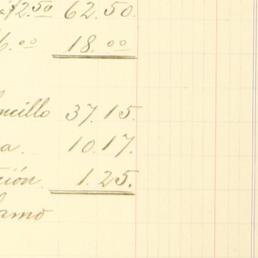 72.50 62.50
6.00 18.00
ncillo 37.15.
a. 10.17.
ción. 1.25.